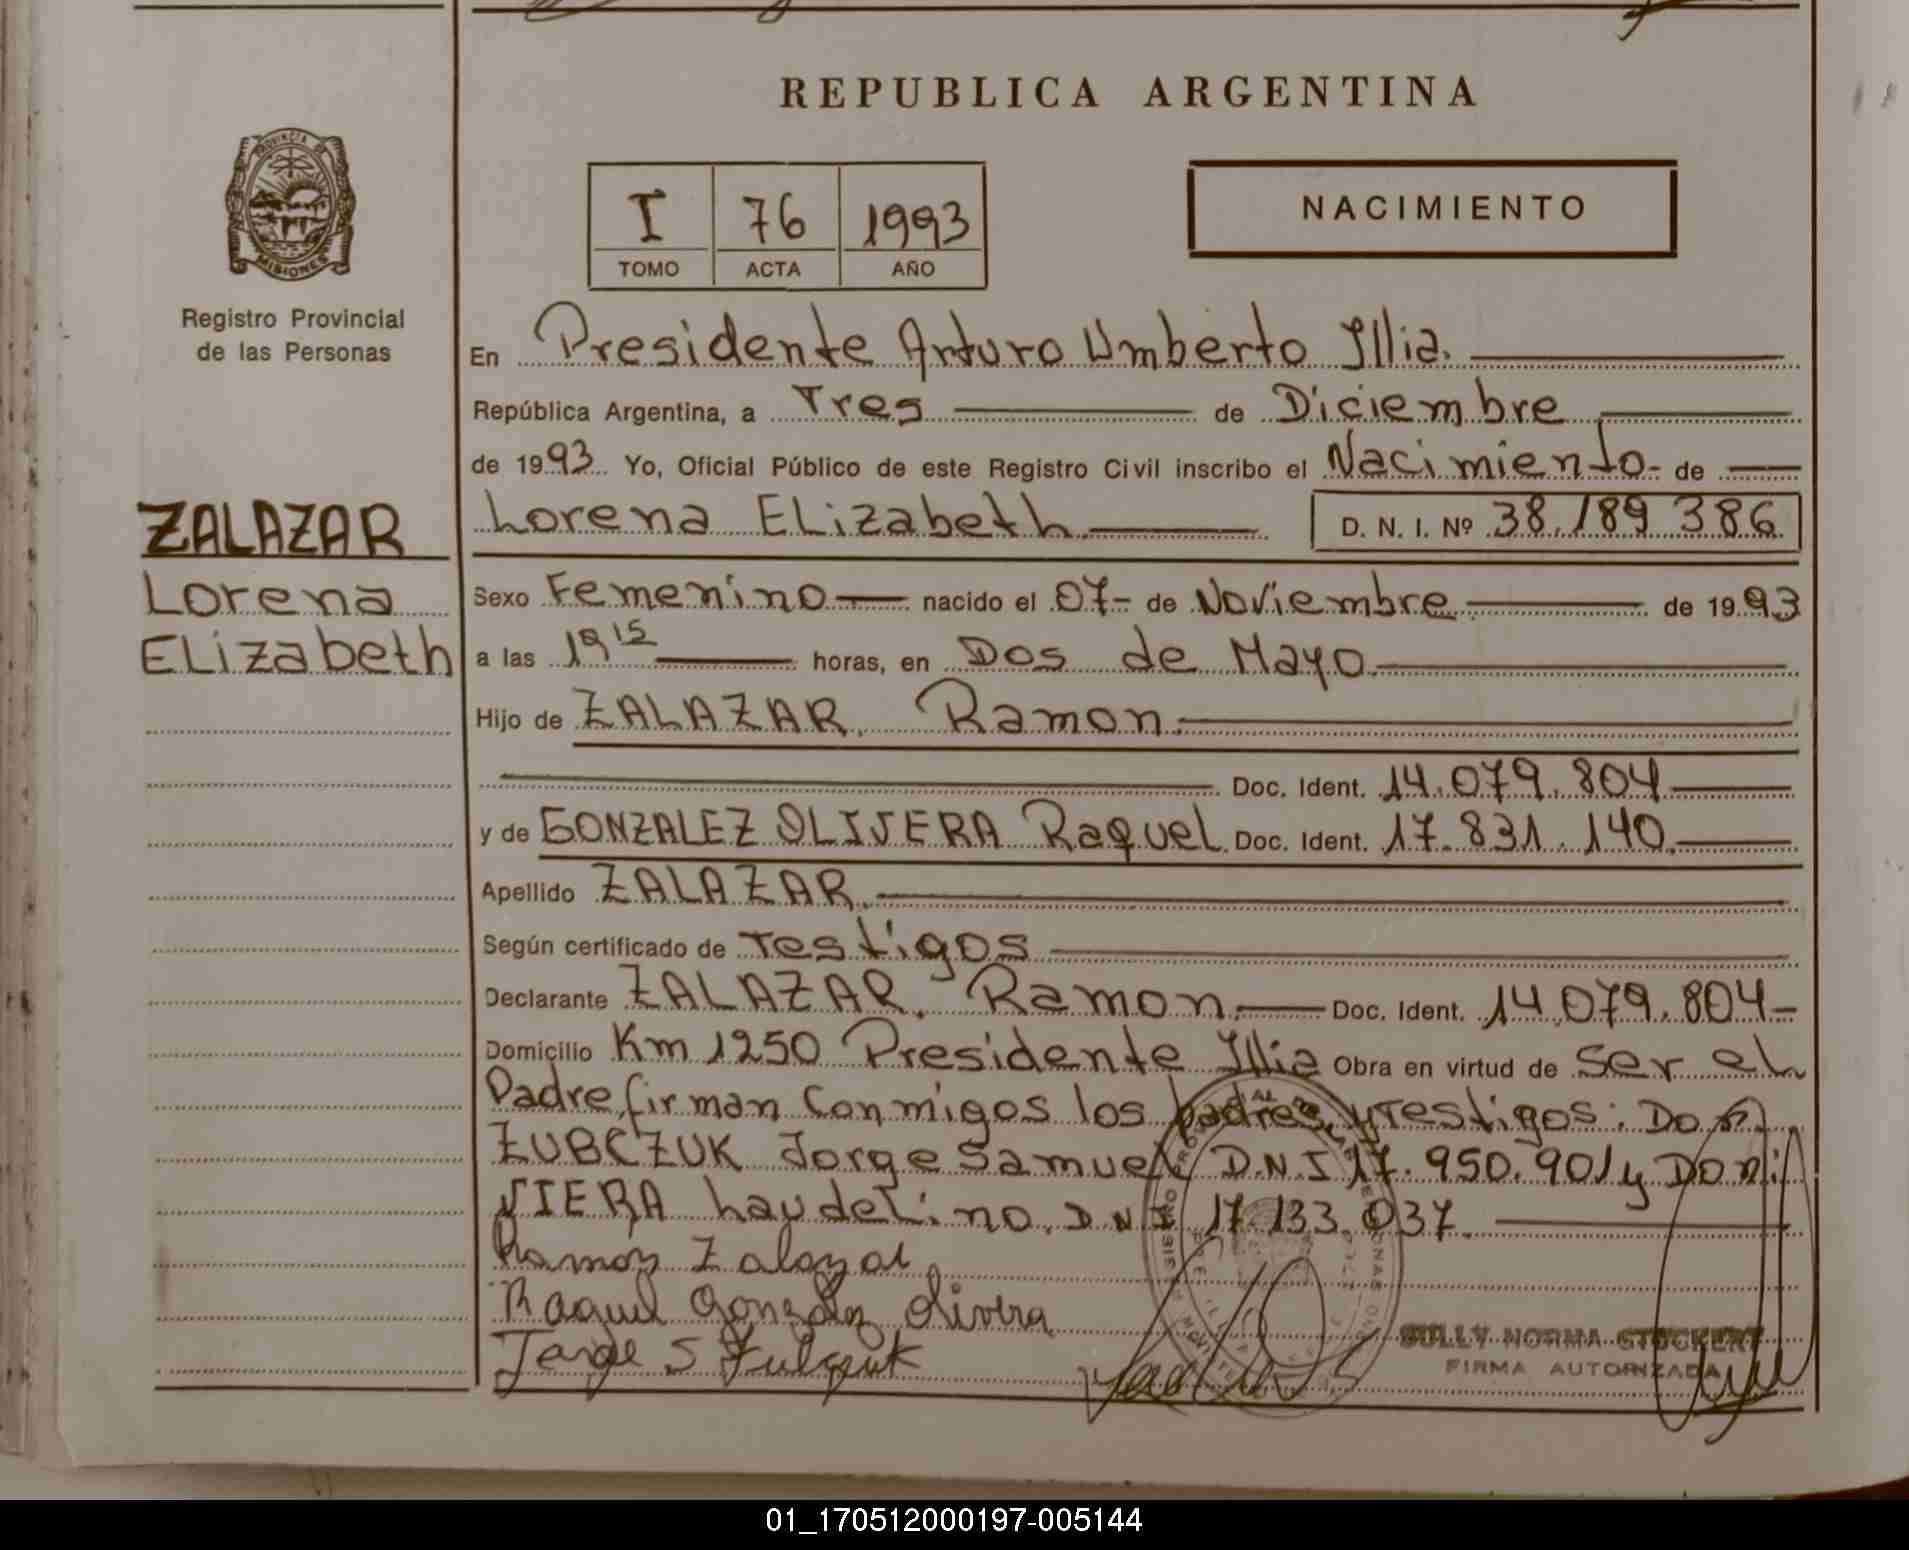 REPUBLICA ARGENTINA
PROVINCIA DE
MISIONES
Registro Provincial
de las Personas
I 76 1993
TOMO ACTA AÑO
NACIMIENTO
En Presidente Arturo Umberto Illia.
República Argentina, a Tres de Diciembre
de 1993 Yo, Oficial Público de este Registro Civil inscribo el Nacimiento de
Lorena ELizabeth D. N. I. Nº 38.189.386
ZALAZAR
Lorena
ELizabeth
Sexo Femenino nacido el 07 de Noviembre de 1993
a las 19 15 horas, en Dos de Mayo
Hijo de ZALAZAR, Ramon.
Doc. Ident. 14.079.804
y de GONZALEZ OLIVERA Raquel Doc. Ident. 17.831.140
Apellido ZALAZAR.
Según certificado de Testigos
Declarante ZALAZAR, Ramon. Doc. Ident. 14.079.804
Domicilio Km 1250 Presidente Illia Obra en virtud de ser el
Padre, firman conmigos los padres, y Testigos: Don
ZUBCZUK Jorge Samuel D.N.I 17.950.901 y Don
VIERA Laudelino. D.N.I 17.133.037.
Ramon Zalazar
Raquel Gonzalez Olivera
Jorge S
NORMA STOCKERT
FIRMA AUTORIZADA
01_170512000197-005144